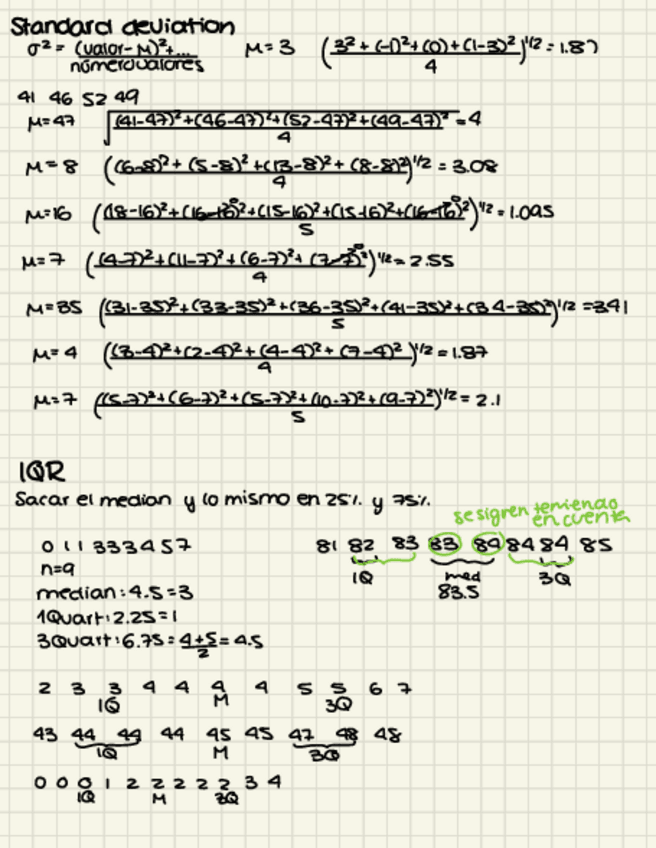 Standard deviation
σ² = (valor - M)² + ... / númerovalores    M = 3    ( 3² + (-1)² + (0) + (1-3)² / 4 )^1/2 = 1.87
41 46 52 49
M = 47    √ (41-47)² + (46-47)² + (52-47)² + (49-47)² / 4 = 4
M = 8    ( (6-8)² + (5-8)² + (13-8)² + (8-8)² / 4 )^1/2 = 3.08
M = 16    ( (18-16)² + (16-16)² + (15-16)² + (15-16)² + (16-16)² / 5 )^1/2 = 1.095
M = 7    ( (4-7)² + (11-7)² + (6-7)² + (7-7)² / 4 )^1/2 = 2.55
M = 35    ( (31-35)² + (33-35)² + (36-35)² + (41-35)² + (34-35)² / 5 )^1/2 = 3.41
M = 4    ( (3-4)² + (2-4)² + (4-4)² + (7-4)² / 4 )^1/2 = 1.87
M = 7    ( (5-7)² + (6-7)² + (5-7)² + (10-7)² + (9-7)² / 5 )^1/2 = 2.1
IQR
Sacar el median y lo mismo en 25% y 75%.
se siguen teniendo
en cuenta
0 1 1 3 3 3 4 5 7
n=9
median: 4.5 = 3
1Quart: 2.25 = 1
3Quart: 6.75 = 4+5 / 2 = 4.5
81 82 83 83 84 84 84 85
1Q med 3Q
83.5
2 3 3 4 4 4 4 5 5 6 7
1Q M 3Q
43 44 44 44 45 45 47 48 48
1Q M 3Q
0 0 0 1 2 2 2 2 2 3 4
1Q M 3Q